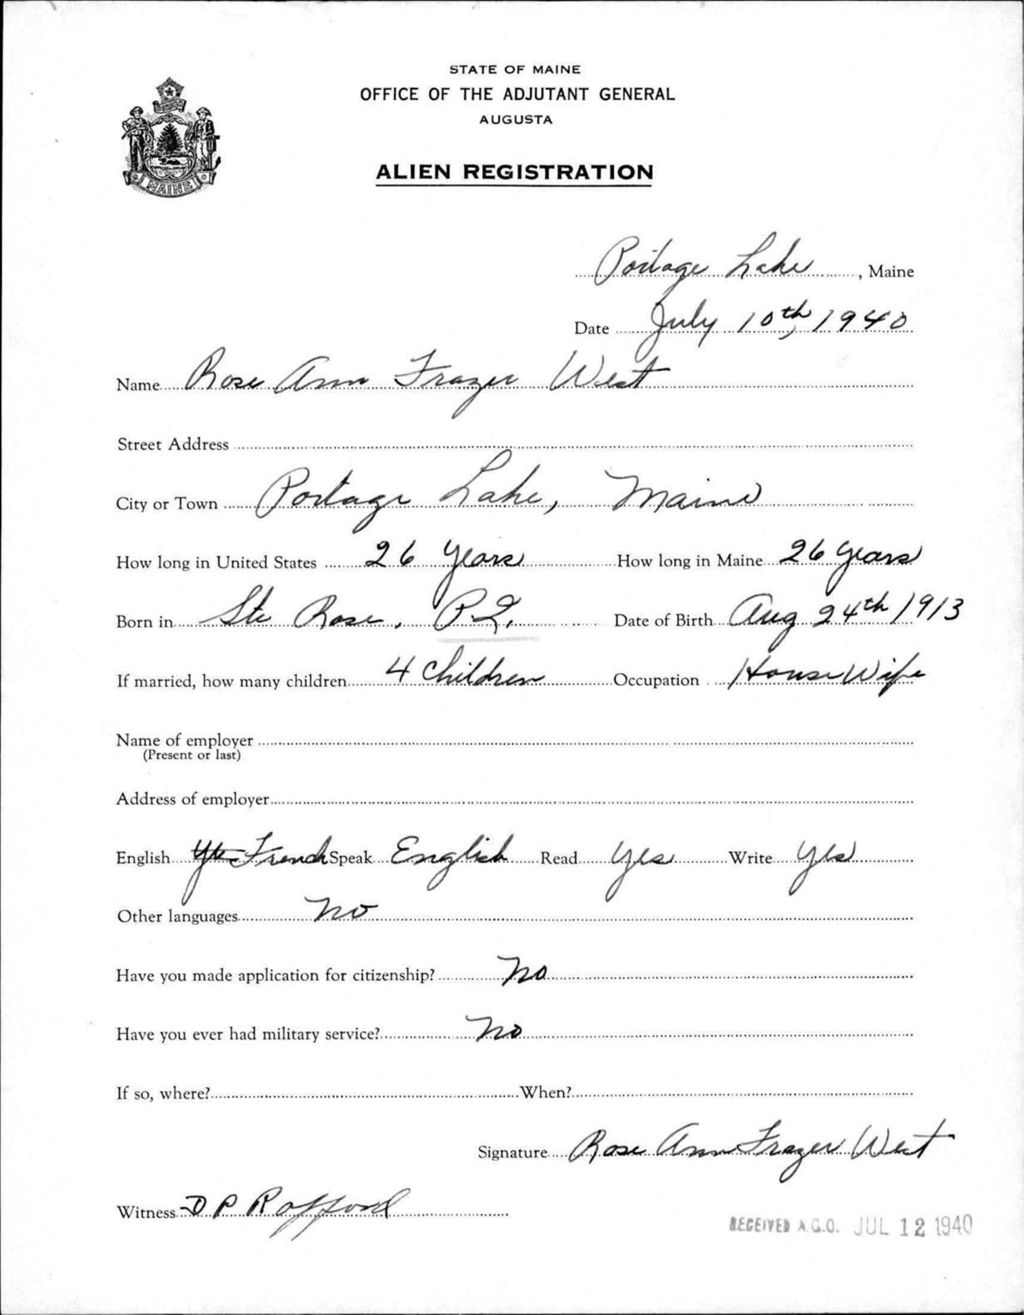 STATE OF MAINE
OFFICE OF THE ADJUTANT GENERAL
AUGUSTA
MAINE
ALIEN REGISTRATION
Portage Lake, Maine
Date July 10th, 1940
Name Rose Ann Frazer West
Street Address
City or Town Portage Lake, Maine
How long in United States 26 Years How long in Maine 26 Years
Born in Ste Rose, P.Q. Date of Birth Aug 24th 1913
If married, how many children 4 Children Occupation House Wife
Name of employer
(Present or last)
Address of employer
English Yes French Speak English Read Yes Write Yes
Other languages No
Have you made application for citizenship? No
Have you ever had military service? No
If so, where? When?
Signature Rose Ann Frazer West
Witness D P Rafford
RECEIVED A.G.O. JUL 12 1940